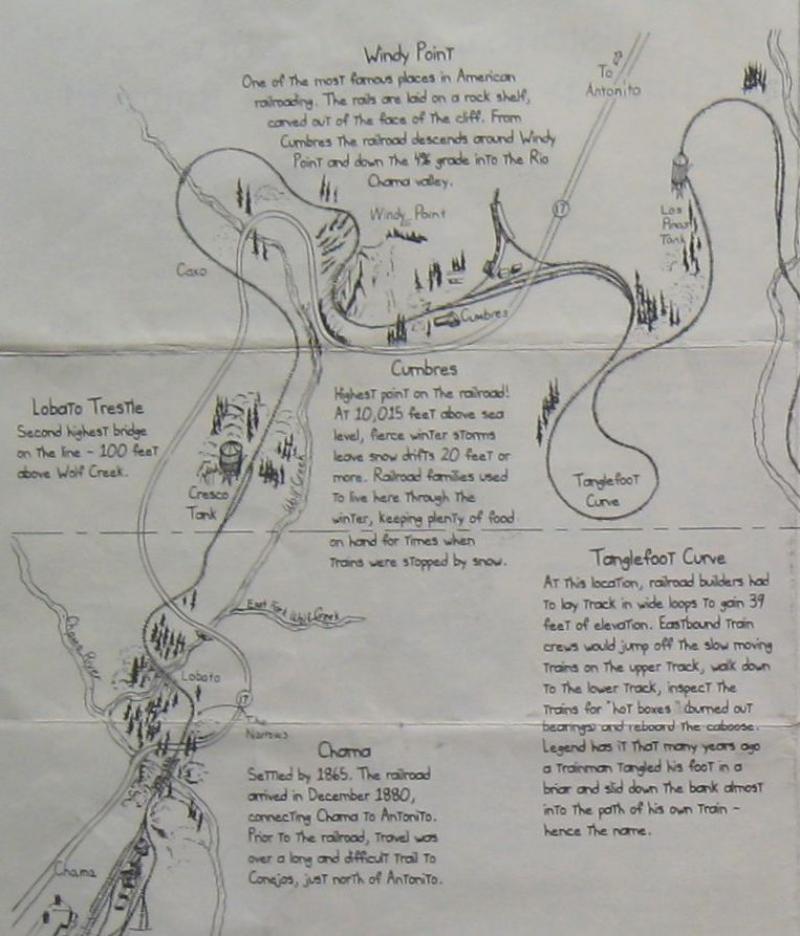 Windy Point
One of the most famous places in American
railroading. The rails are laid on a rock shelf,
carved out of the face of the cliff. From
Cumbres the railroad descends around Windy
Point and down the 4% grade into the Rio
Chama valley.
To
Antonito
17
Los
Pinos
Tank
Windy Point
Coxo
Cumbres
Cumbres
Highest point on the railroad!
At 10,015 feet above sea
level, fierce winter storms
leave snow drifts 20 feet or
more. Railroad families used
to live here through the
winter, keeping plenty of food
on hand for times when
trains were stopped by snow.
Lobato Trestle
Second highest bridge
on the line - 100 feet
above Wolf Creek.
Cresco
Tank
Wolf Creek
Tanglefoot
Curve
Tanglefoot Curve
At this location, railroad builders had
to lay track in wide loops to gain 39
feet of elevation. Eastbound train
crews would jump off the slow moving
trains on the upper track, walk down
to the lower track, inspect the
trains for "hot boxes" (burned out
bearings) and reboard the caboose.
Legend has it that many years ago
a trainman tangled his foot in a
briar and slid down the bank almost
into the path of his own train -
hence the name.
East Fork Wolf Creek
Chama River
Lobato
17
The
Narrows
Chama
Settled by 1865. The railroad
arrived in December 1880,
connecting Chama to Antonito.
Prior to the railroad, travel was
over a long and difficult trail to
Conejos, just north of Antonito.
Chama